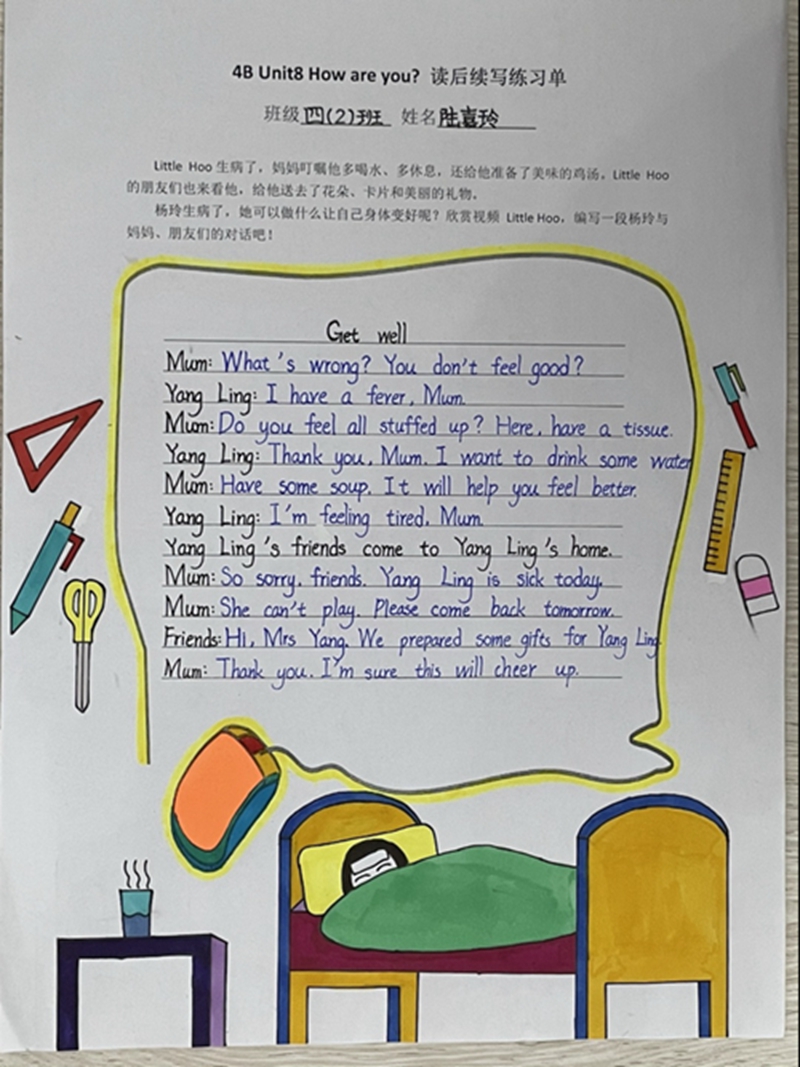 4B Unit8 How are you? 读后续写练习单
班级 四(2)班 姓名 陆嘉玲
Little Hoo 生病了，妈妈叮嘱他多喝水、多休息，还给他准备了美味的鸡汤。Little Hoo
的朋友们也来看他，给他送去了花朵、卡片和美丽的礼物。
杨玲生病了，她可以做什么让自己身体变好呢？欣赏视频 Little Hoo，编写一段杨玲与
妈妈、朋友们的对话吧！
Get well
Mum: What's wrong? You don't feel good?
Yang Ling: I have a fever, Mum.
Mum: Do you feel all stuffed up? Here, have a tissue.
Yang Ling: Thank you, Mum. I want to drink some water
Mum: Have some soup. It will help you feel better.
Yang Ling: I'm feeling tired, Mum.
Yang Ling's friends come to Yang Ling's home.
Mum: So sorry, friends. Yang Ling is sick today.
Mum: She can't play. Please come back tomorrow.
Friends: Hi, Mrs Yang. We prepared some gifts for Yang Ling.
Mum: Thank you. I'm sure this will cheer up.